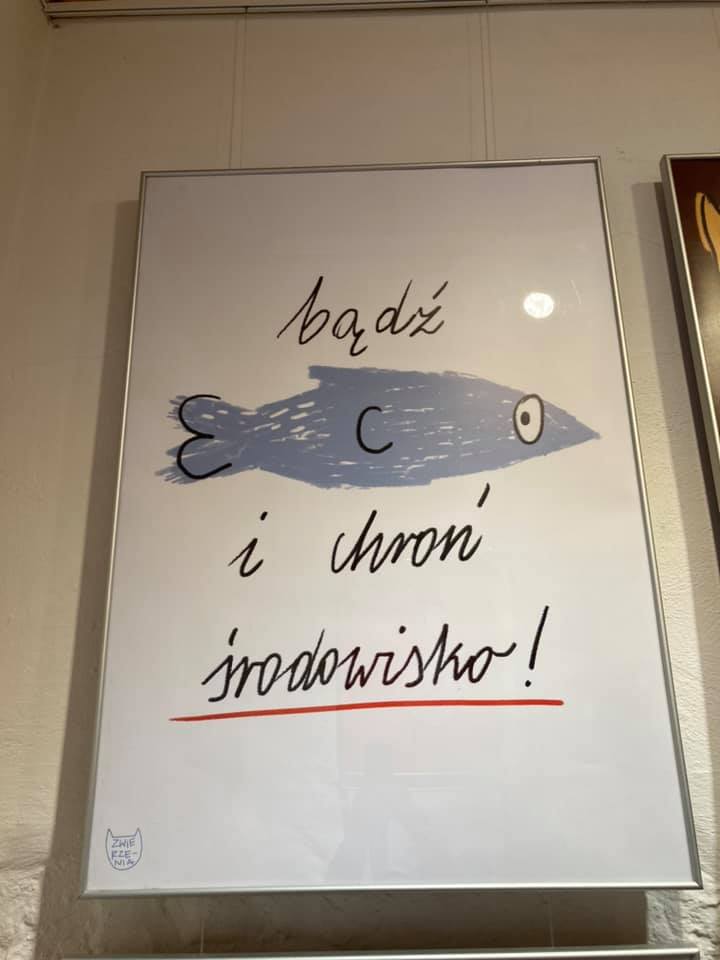 bądź
ECO
i chroń
środowisko!
ZWIE
RZE-
NIA